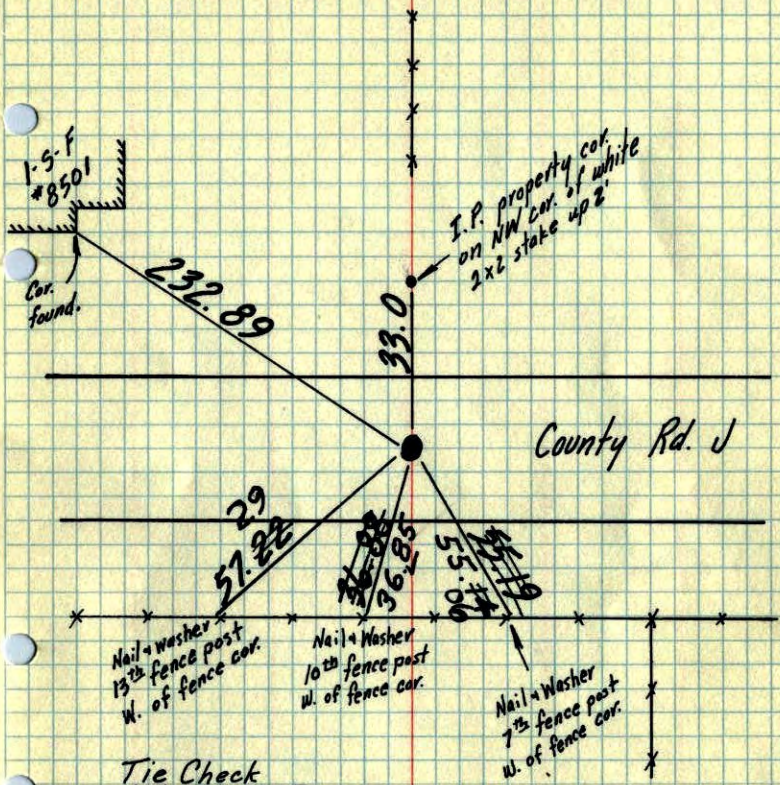 1-S-F
#8501
Cor.
found.
232.89
I.P. property cor.
on NW cor. of white
2x2 stake up 2'
33.0
County Rd. J
29
57.22
36.85
55.19
55.06
Nail & Washer
13th fence post
W. of fence cor.
Nail & Washer
10th fence post
W. of fence cor.
Nail & Washer
7th fence post
W. of fence cor.
Tie Check